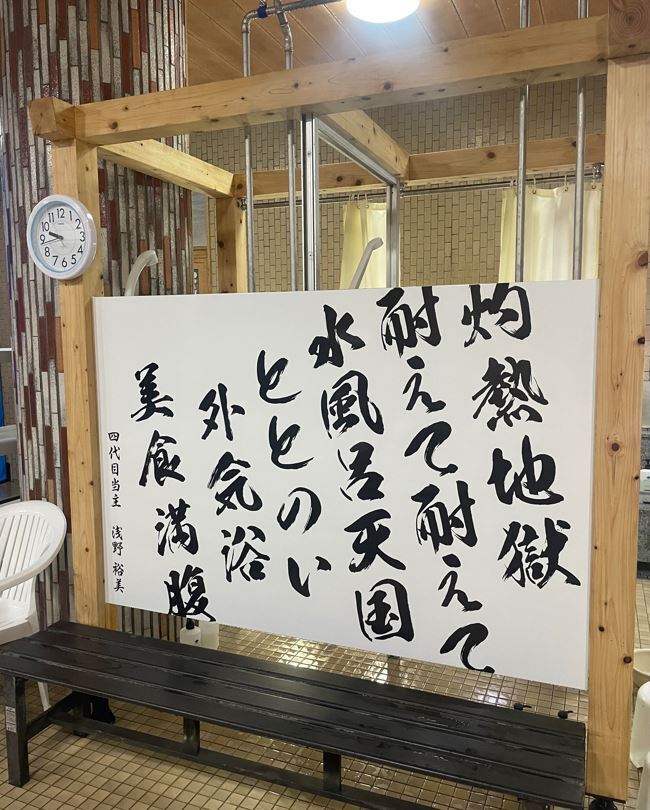 灼熱地獄
耐えて耐えて
水風呂天国
ととのい
外気浴
美食満腹
四代目当主 浅野裕美